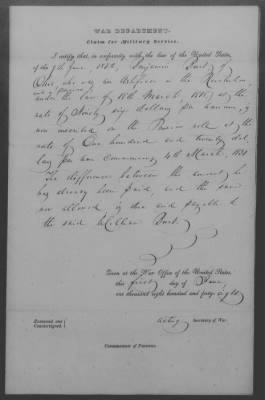 WAR DEPARTMENT.
Claim for Military Service.
I certify that, in conformity with the law of the United States,
of the 7th June, 1832, Benjamin Burt, of
Ohio who was an Artificer in the Revolution
under the law of 18th March, 1818, at the
rate of Ninety six dollars per annum, is
now inscribed on the Pension roll at the
rate of One hundred and twenty dol-
lars per ann commencing 4th March, 1831
The difference between the amount he
has already been paid, and the sum
now allowed, is due and payable to
the said Burt.
Given at the War Office of the United States,
this first day of June,
one thousand eight hundred and forty eight
Examined and
Countersigned,
Acting Secretary of War.
Commissioner of Pensions.